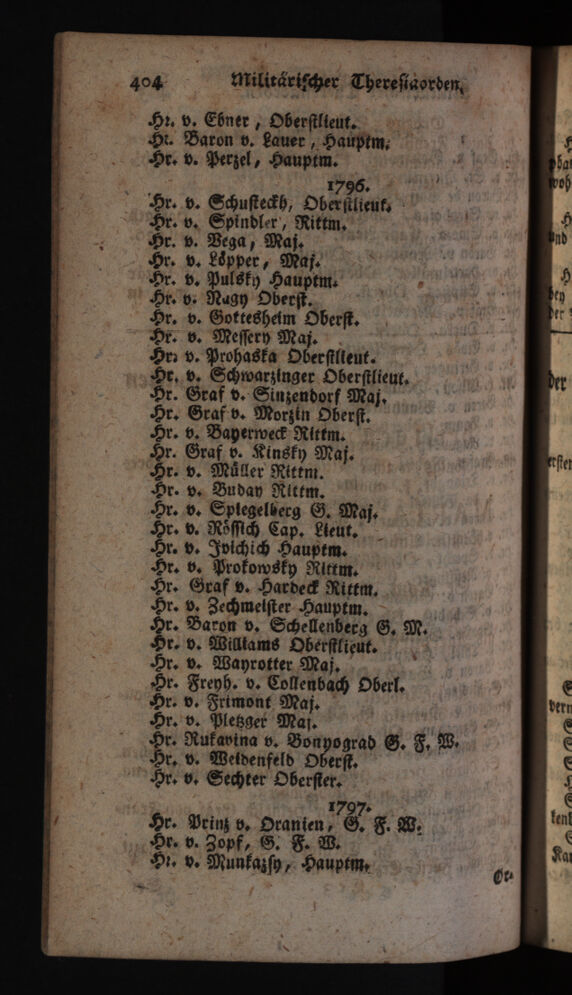 404 Militärischer Theresiaorden.
Hr. v. Ebner, Oberstlieut.
Hr. Baron v. Lauer, Hauptm.
Hr. v. Perzel, Hauptm.
1796.
Hr. v. Schusteckh, Oberstlieut.
Hr. v. Spindler, Rittm.
Hr. v. Vega, Maj.
Hr. v. Löpper, Maj.
Hr. v. Pulsky Hauptm.
Hr. v. Nagy Oberst.
Hr. v. Gottesheim Oberst.
Hr. v. Messery Maj.
Hr. v. Prohaska Oberstlieut.
Hr. v. Schwarzinger Oberstlieut.
Hr. Graf v. Sinzendorf Maj.
Hr. Graf v. Morzin Oberst.
Hr. v. Bayerweck Rittm.
Hr. Graf v. Kinsky Maj.
Hr. v. Müller Rittm.
Hr. v. Buday Rittm.
Hr. v. Spiegelberg G. Maj.
Hr. v. Rössich Cap. Lieut.
Hr. v. Ivichich Hauptm.
Hr. v. Prokowsky Rittm.
Hr. Graf v. Hardeck Rittm.
Hr. v. Zechmeister Hauptm.
Hr. Baron v. Schellenberg G. M.
Hr. v. Williams Oberstlieut.
Hr. v. Wayrotter Maj.
Hr. Freyh. v. Collenbach Oberl.
Hr. v. Frimont Maj.
Hr. v. Pletzger Maj.
Hr. Rukavina v. Bonyograd G. F. W.
Hr. v. Weidenfeld Oberst.
Hr. v. Sechter Oberster.
1797.
Hr. Prinz v. Oranien, G. F. W.
Hr. v. Zopf, G. F. W.
Hr. v. Munkazsy, Hauptm.